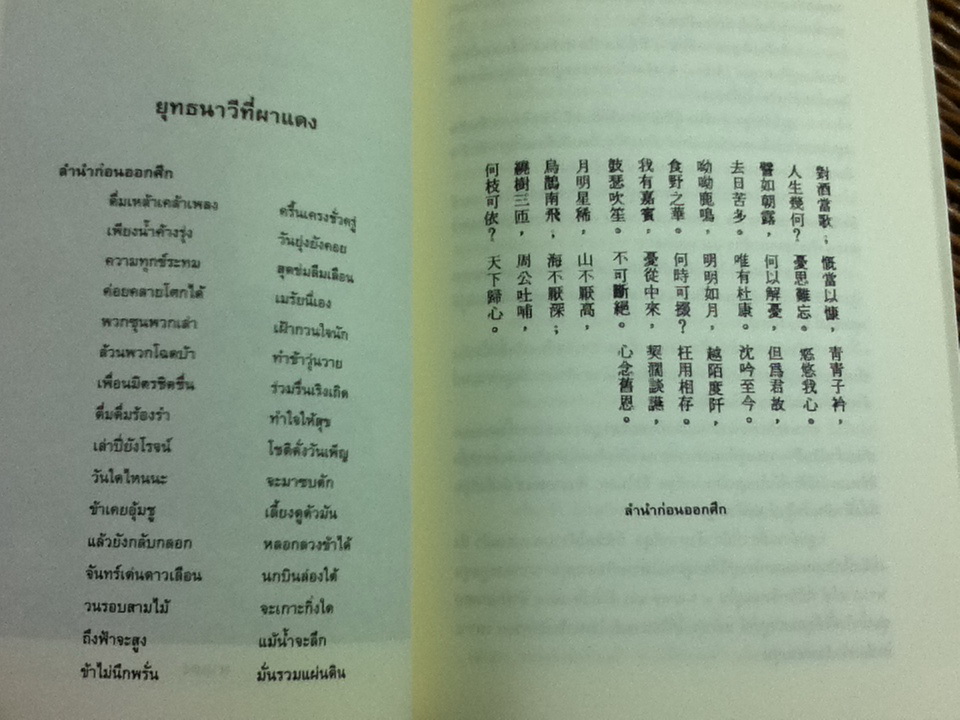 ยุทธนาวีที่ผาแดง
ลำนำก่อนออกศึก
ดื่มเหล้าเคล้าเพลง ครื้นเครงชั่วครู่
เพียงน้ำค้างรุ่ง วันยุ่งยังคอย
ความทุกข์ระทม สุดข่มลืมเลือน
ค่อยคลายโศกได้ เมรัยนี่เอง
พวกซุนพวกเล่า เฝ้ากวนใจนัก
ล้วนพวกโฉดบ้า ทำข้าวุ่นวาย
เพื่อนมิตรชิดชื่น ร่วมรื่นเริงเถิด
ดื่มดื่มร้องรำ ทำใจให้สุข
เล่าปี่ยังโรจน์ โชติดั่งวันเพ็ญ
วันใดไหนนะ จะมาซบตัก
ข้าเคยอุ้มชู เลี้ยงดูตัวมัน
แล้วยังกลับกลอก หลอกลวงข้าได้
จันทร์เด่นดาวเลือน นกบินล่องใต้
วนรอบสามไม้ จะเกาะกิ่งใด
ถึงฟ้าจะสูง แม้น้ำจะลึก
ข้าไม่นึกพรั่น มั่นรวมแผ่นดิน
對酒當歌；慨當以慷，青青子衿，
人生幾何？憂思難忘。悠悠我心。
譬如朝露，何以解憂，但爲君故，
去日苦多。唯有杜康。沈吟至今。
呦呦鹿鳴，明明如月，越陌度阡，
食野之華。何時可掇？枉用相存。
我有嘉賓，憂從中來，契濶談讌，
鼓瑟吹笙。不可斷絕。心念舊恩。
月明星稀，山不厭高，
烏鵲南飛；海不厭深；
繞樹三匝，周公吐哺，
何枝可依？天下歸心。
ลำนำก่อนออกศึก